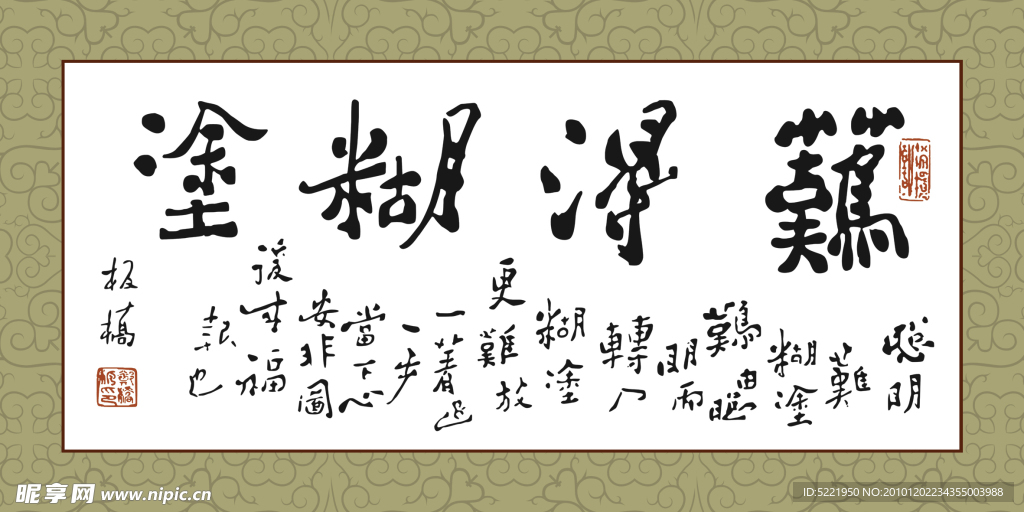 難得糊塗
聰明
難
糊塗
難由聰
明而
轉入
糊塗
更難放
一著退
一步
當下心
安非圖
後來福
報也
板橋
昵享网 www.nipic.cn
ID:5221950 NO:20101202234355003988